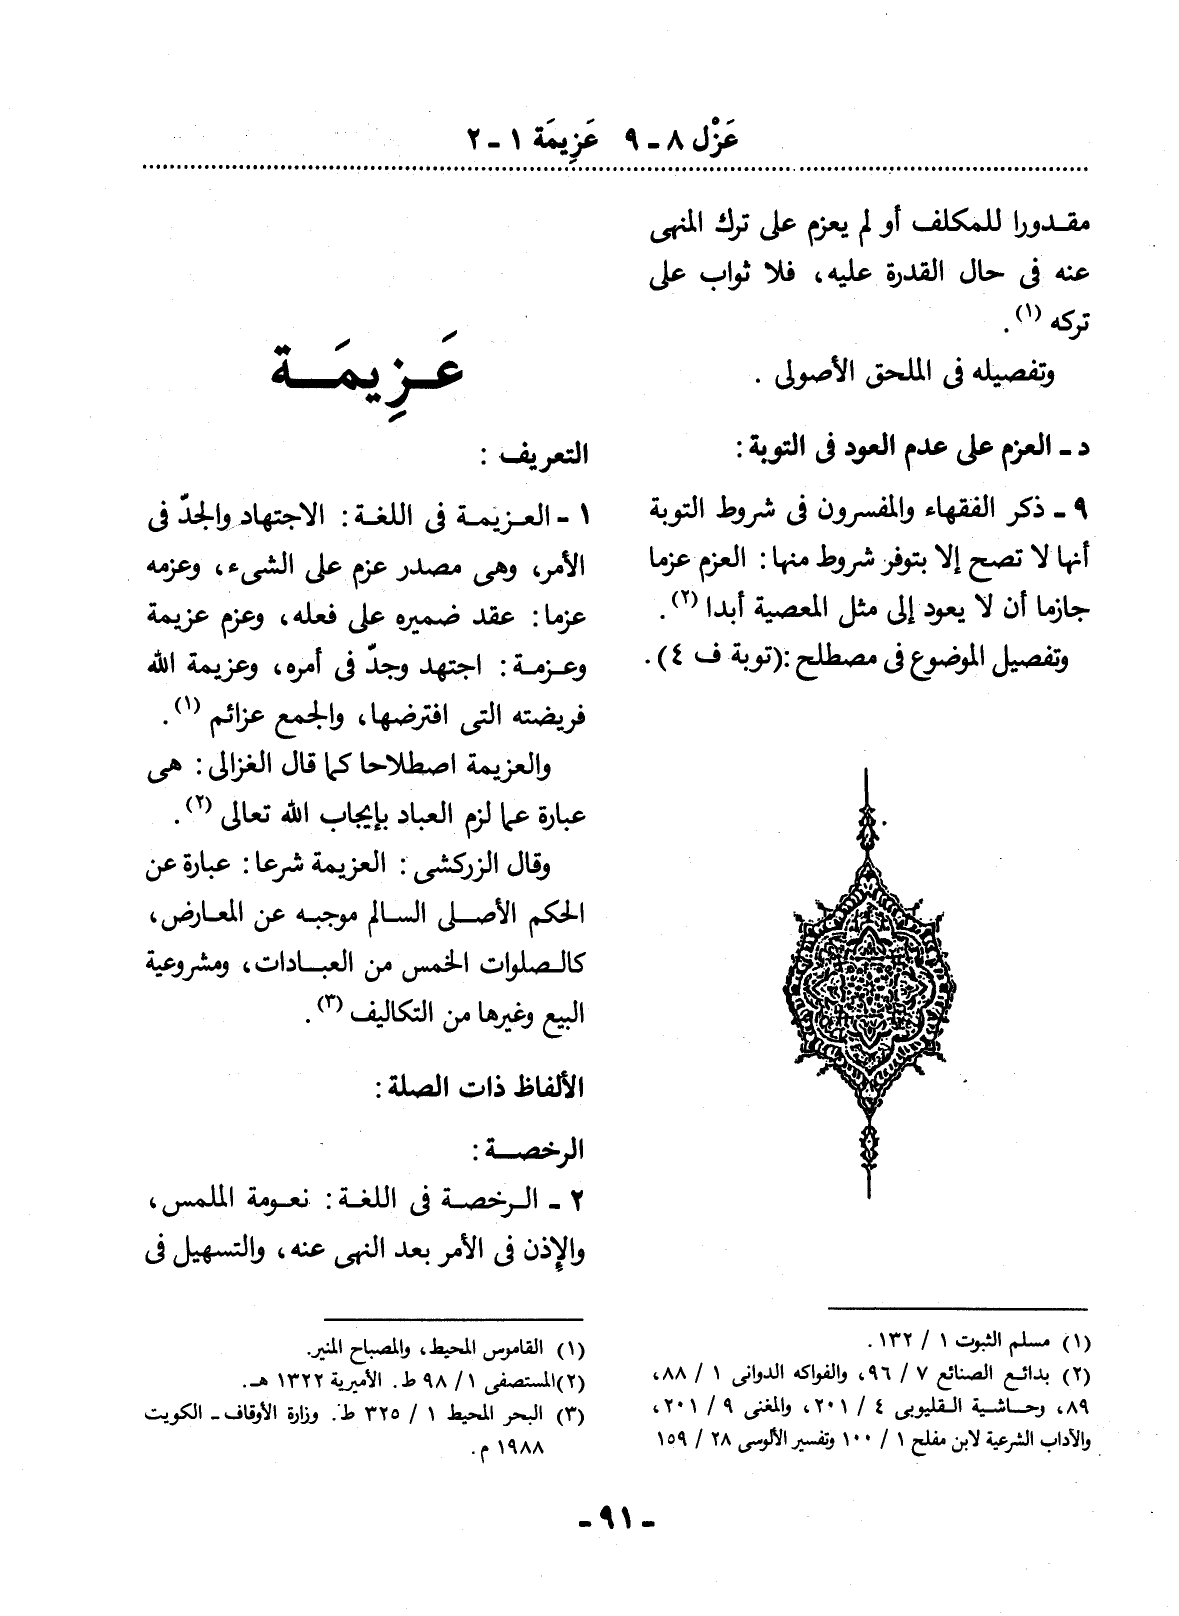 عَزْل ٨ - ٩ عَزِيمَة ١ - ٢
مقـدورا للمكلف أو لم يعزم على ترك المنهى
عنه فى حال القدرة عليه، فلا ثواب على
تركه (١).
وتفصيله فى الملحق الأصولى .
د - العزم على عدم العود فى التوبة :
٩ - ذكر الفقهاء والمفسرون فى شروط التوبة
أنها لا تصح إلا بتوفر شروط منها : العزم عزما
جازما أن لا يعود إلى مثل المعصية أبدا (٢).
وتفصيل الموضوع فى مصطلح :(توبة ف ٤).
(١) مسلم الثبوت ١ / ١٣٢.
(٢) بدائـع الصنائع ٧ / ٩٦، والفواكه الدوانى ١ / ٨٨،
٨٩، وحـاشية القليوبى ٤ / ٢٠١، والمغنى ٩ / ٢٠١،
والآداب الشرعية لابن مفلح ١ / ١٠٠ وتفسير الألوسى ٢٨ / ١٥٩
عَـزِيمَـة
التعريف :
١ - العـزيمـة فى اللغـة : الاجتهاد والجدّ فى
الأمر، وهى مصدر عزم على الشىء، وعزمه
عزما : عقد ضميره على فعله، وعزم عزيمة
وعـزمـة : اجتهد وجدّ فى أمره، وعزيمة الله
فريضته التى افترضها، والجمع عزائم (١).
والعزيمة اصطلاحا كما قال الغزالى : هى
عبارة عما لزم العباد بإيجاب الله تعالى (٢).
وقال الزركشى : العزيمة شرعا : عبارة عن
الحكم الأصـلى السـالم موجبـه عن المعـارض،
كالـصلوات الخمس من العبـادات، ومشروعية
البيع وغيرها من التكاليف (٣).
الألفاظ ذات الصلة :
الرخصـة :
٢ - الـرخصـة فى اللغـة : نعـومة الملمس،
والإذن فى الأمر بعد النهى عنه، والتسهيل فى
(١) القاموس المحيط، والمصباح المنير.
(٢)المستصفى ١ / ٩٨ ط. الأميرية ١٣٢٢ هـ.
(٣) البحر المحيط ١ / ٣٢٥ ط. وزارة الأوقاف - الكويت
١٩٨٨ م.
- ٩١ -